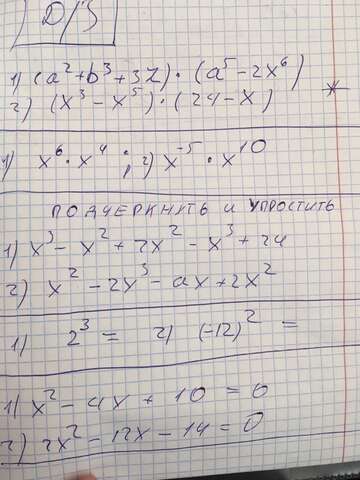 Д/З
1) (a² + b³ + 3z) · (a⁵ - 2x⁶)
2) (x³ - x⁵) · (24 - x)
1) x⁶ · x⁴ ; 2) x⁻⁵ · x¹⁰
ПОДЧЕРКНУТЬ и УПРОСТИТЬ
1) x³ - x² + 2x² - x³ + 24
2) x² - 2x³ - ax + 2x²
1) 2³ = 2) (-12)² =
1) x² - 4x + 10 = 0
2) 2x² - 12x - 14 = 0